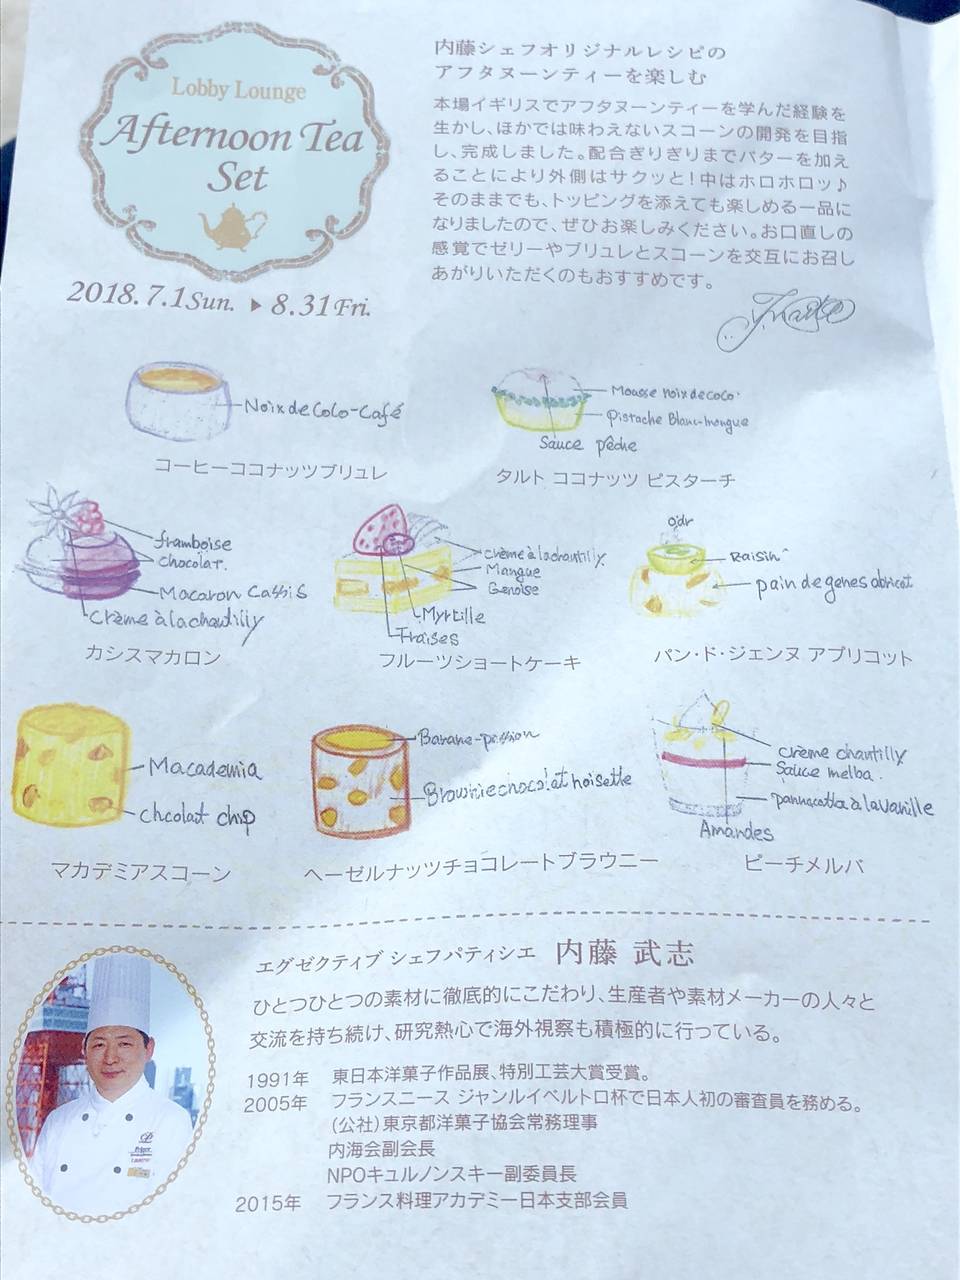 Lobby Lounge
Afternoon Tea
Set
2018.7.1Sun. ▶ 8.31Fri.
内藤シェフオリジナルレシピの
アフタヌーンティーを楽しむ
本場イギリスでアフタヌーンティーを学んだ経験を
生かし、ほかでは味わえないスコーンの開発を目指
し、完成しました。配合ぎりぎりまでバターを加え
ることにより外側はサクッと!中はホロホロッ♪
そのままでも、トッピングを添えても楽しめる一品に
なりましたので、ぜひお楽しみください。お口直しの
感覚でゼリーやブリュレとスコーンを交互にお召し
あがりいただくのもおすすめです。
Noix de Coco-Café
コーヒーココナッツブリュレ
Mousse noix de coco
Pistache Blanc-mangue
Sauce pêche
タルト ココナッツ ピスターチ
framboise
chocolat.
Macaron Cassis
Crème à la chantilly
カシスマカロン
crème à la chantilly
Mangue
Genoise
Myrtille
Fraises
フルーツショートケーキ
Raisin
pain de genes abricot
パン・ド・ジェンヌ アプリコット
Macademia
chcolat chip
マカデミアスコーン
Banane-passion
Brownie chocolat noisette
ヘーゼルナッツチョコレートブラウニー
crème chantilly
Sauce melba.
pannacotta à la vanille
Amandes
ピーチメルバ
エグゼクティブ シェフパティシエ 内藤 武志
ひとつひとつの素材に徹底的にこだわり、生産者や素材メーカーの人々と
交流を持ち続け、研究熱心で海外視察も積極的に行っている。
1991年 東日本洋菓子作品展、特別工芸大賞受賞。
2005年 フランスニース ジャンルイベルトロ杯で日本人初の審査員を務める。
(公社)東京都洋菓子協会常務理事
内海会副会長
NPOキュルノンスキー副委員長
2015年 フランス料理アカデミー日本支部会員